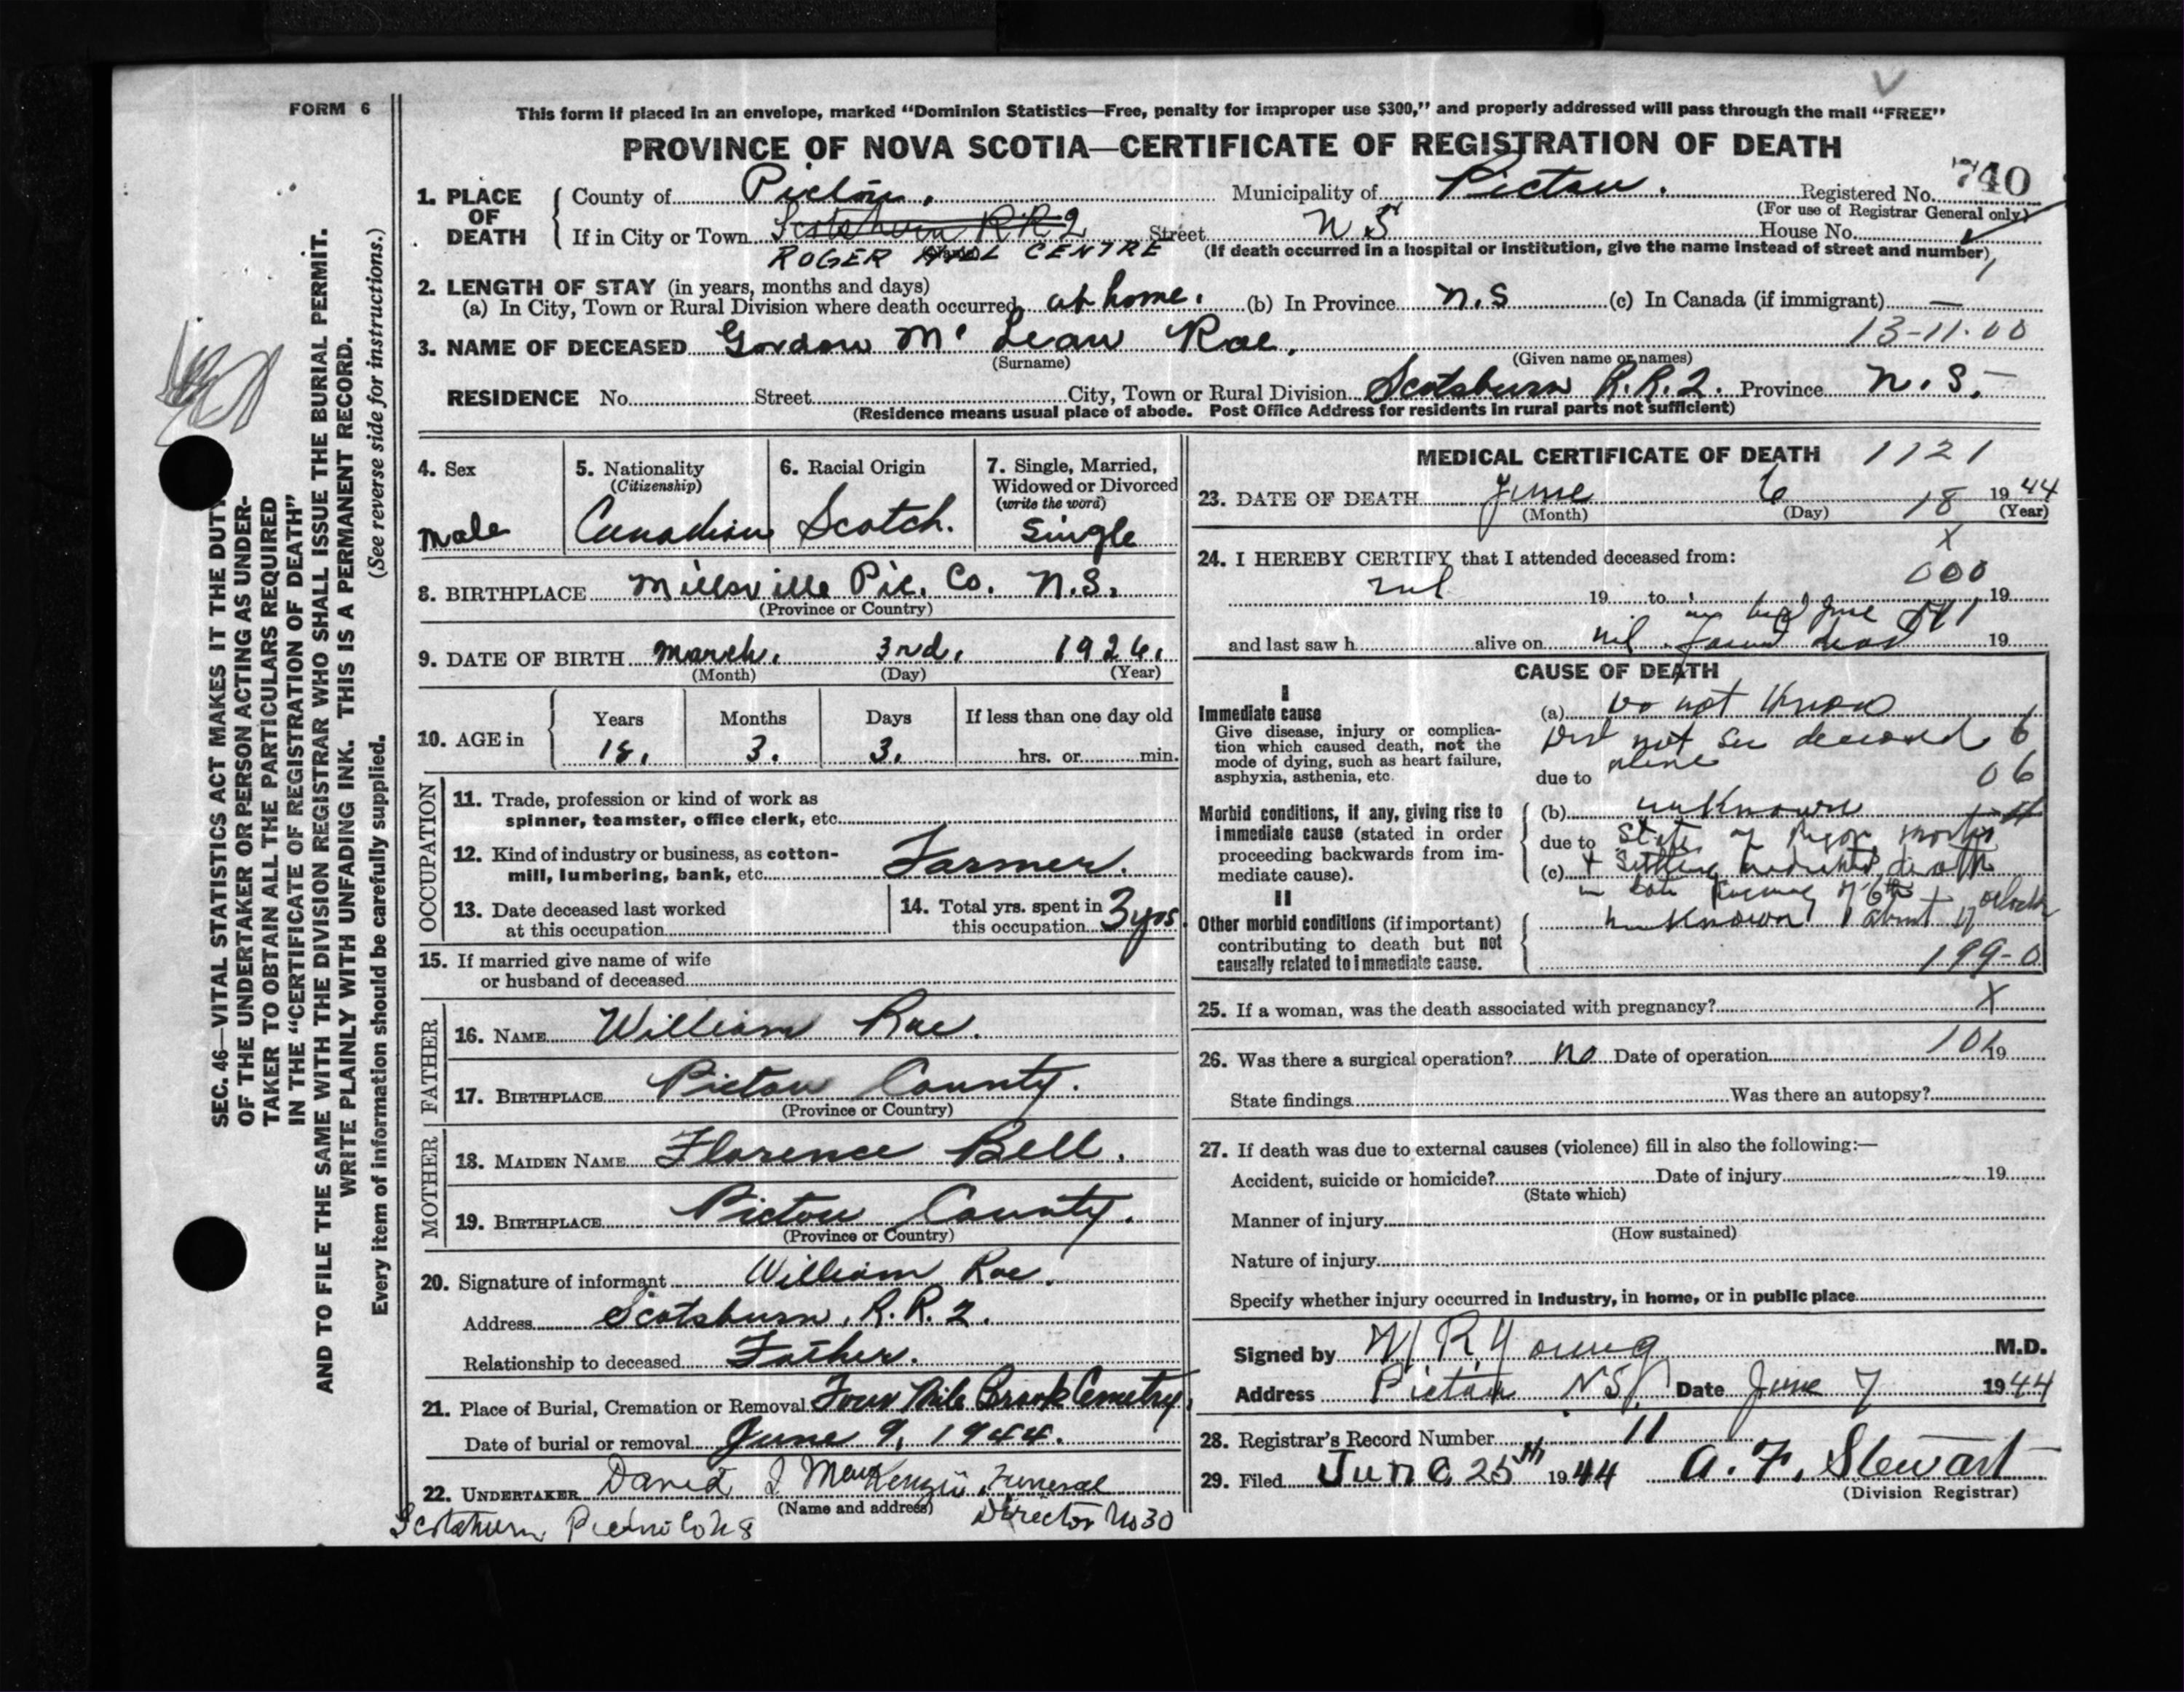 FORM 6
This form if placed in an envelope, marked “Dominion Statistics—Free, penalty for improper use $300,” and properly addressed will pass through the mail “FREE”
PROVINCE OF NOVA SCOTIA—CERTIFICATE OF REGISTRATION OF DEATH
740
1. PLACE OF DEATH County of Pictou. Municipality of Pictou. Registered No.
(For use of Registrar General only)
If in City or Town Scotsburn RR2 Street N S House No.
ROGER HILL CENTRE (If death occurred in a hospital or institution, give the name instead of street and number)
2. LENGTH OF STAY (in years, months and days)
(a) In City, Town or Rural Division where death occurred at home. (b) In Province N.S (c) In Canada (if immigrant) —
3. NAME OF DECEASED Gordon Mc Lean Rae. 13-11-00
(Surname) (Given name or names)
RESIDENCE No. Street City, Town or Rural Division Scotsburn R.R.2. Province N.S.
(Residence means usual place of abode. Post Office Address for residents in rural parts not sufficient)
4. Sex
male
5. Nationality
(Citizenship)
Canadian
6. Racial Origin
Scotch.
7. Single, Married,
Widowed or Divorced
(write the word)
Single
8. BIRTHPLACE Millsville Pic. Co. N.S.
(Province or Country)
9. DATE OF BIRTH March. 3rd. 1926.
(Month) (Day) (Year)
10. AGE in Years Months Days If less than one day old
18. 3. 3. hrs. or min.
OCCUPATION
11. Trade, profession or kind of work as
spinner, teamster, office clerk, etc.
12. Kind of industry or business, as cotton-
mill, lumbering, bank, etc. Farmer.
13. Date deceased last worked
at this occupation
14. Total yrs. spent in
this occupation 3 yrs.
15. If married give name of wife
or husband of deceased
FATHER
16. NAME William Rae.
17. BIRTHPLACE Pictou County.
(Province or Country)
MOTHER
18. MAIDEN NAME Florence Bell.
19. BIRTHPLACE Pictou County.
(Province or Country)
20. Signature of informant William Rae.
Address Scotsburn, R.R.2.
Relationship to deceased Father.
21. Place of Burial, Cremation or Removal Four Mile Brook Cemetry.
Date of burial or removal June 9, 1944.
22. UNDERTAKER David J MacKenzie, Funeral
(Name and address) Director No 30
Scotsburn Pictou Co NS
MEDICAL CERTIFICATE OF DEATH 1121
23. DATE OF DEATH June 6 18 1944
(Month) (Day) (Year)
X
24. I HEREBY CERTIFY that I attended deceased from:
000
nil 19 to 19
June
and last saw h alive on nil. found dead 19
CAUSE OF DEATH
I
Immediate cause
Give disease, injury or complica-
tion which caused death, not the
mode of dying, such as heart failure,
asphyxia, asthenia, etc.
(a) Do not Know
Did not see deceased 6
alive
due to 06
Morbid conditions, if any, giving rise to
immediate cause (stated in order
proceeding backwards from im-
mediate cause).
(b) unknown
due to State of Rigor mortis
(c) + Settling indicated death
in late evening of 6th
II
Other morbid conditions (if important)
contributing to death but not
causally related to immediate cause.
unknown about oclock
199-0
25. If a woman, was the death associated with pregnancy? X
26. Was there a surgical operation? no Date of operation 19
State findings Was there an autopsy?
27. If death was due to external causes (violence) fill in also the following:—
Accident, suicide or homicide? Date of injury 19
(State which)
Manner of injury
(How sustained)
Nature of injury
Specify whether injury occurred in industry, in home, or in public place
Signed by R Young M.D.
Address Pictou N.S. Date June 7 1944
28. Registrar's Record Number 11
29. Filed June 25th 1944 A. F. Stewart
(Division Registrar)
SEC. 46—VITAL STATISTICS ACT MAKES IT THE DUTY
OF THE UNDERTAKER OR PERSON ACTING AS UNDER-
TAKER TO OBTAIN ALL THE PARTICULARS REQUIRED
IN THE “CERTIFICATE OF REGISTRATION OF DEATH”
AND TO FILE THE SAME WITH THE DIVISION REGISTRAR WHO SHALL ISSUE THE BURIAL PERMIT.
WRITE PLAINLY WITH UNFADING INK. THIS IS A PERMANENT RECORD.
Every item of information should be carefully supplied. (See reverse side for instructions.)